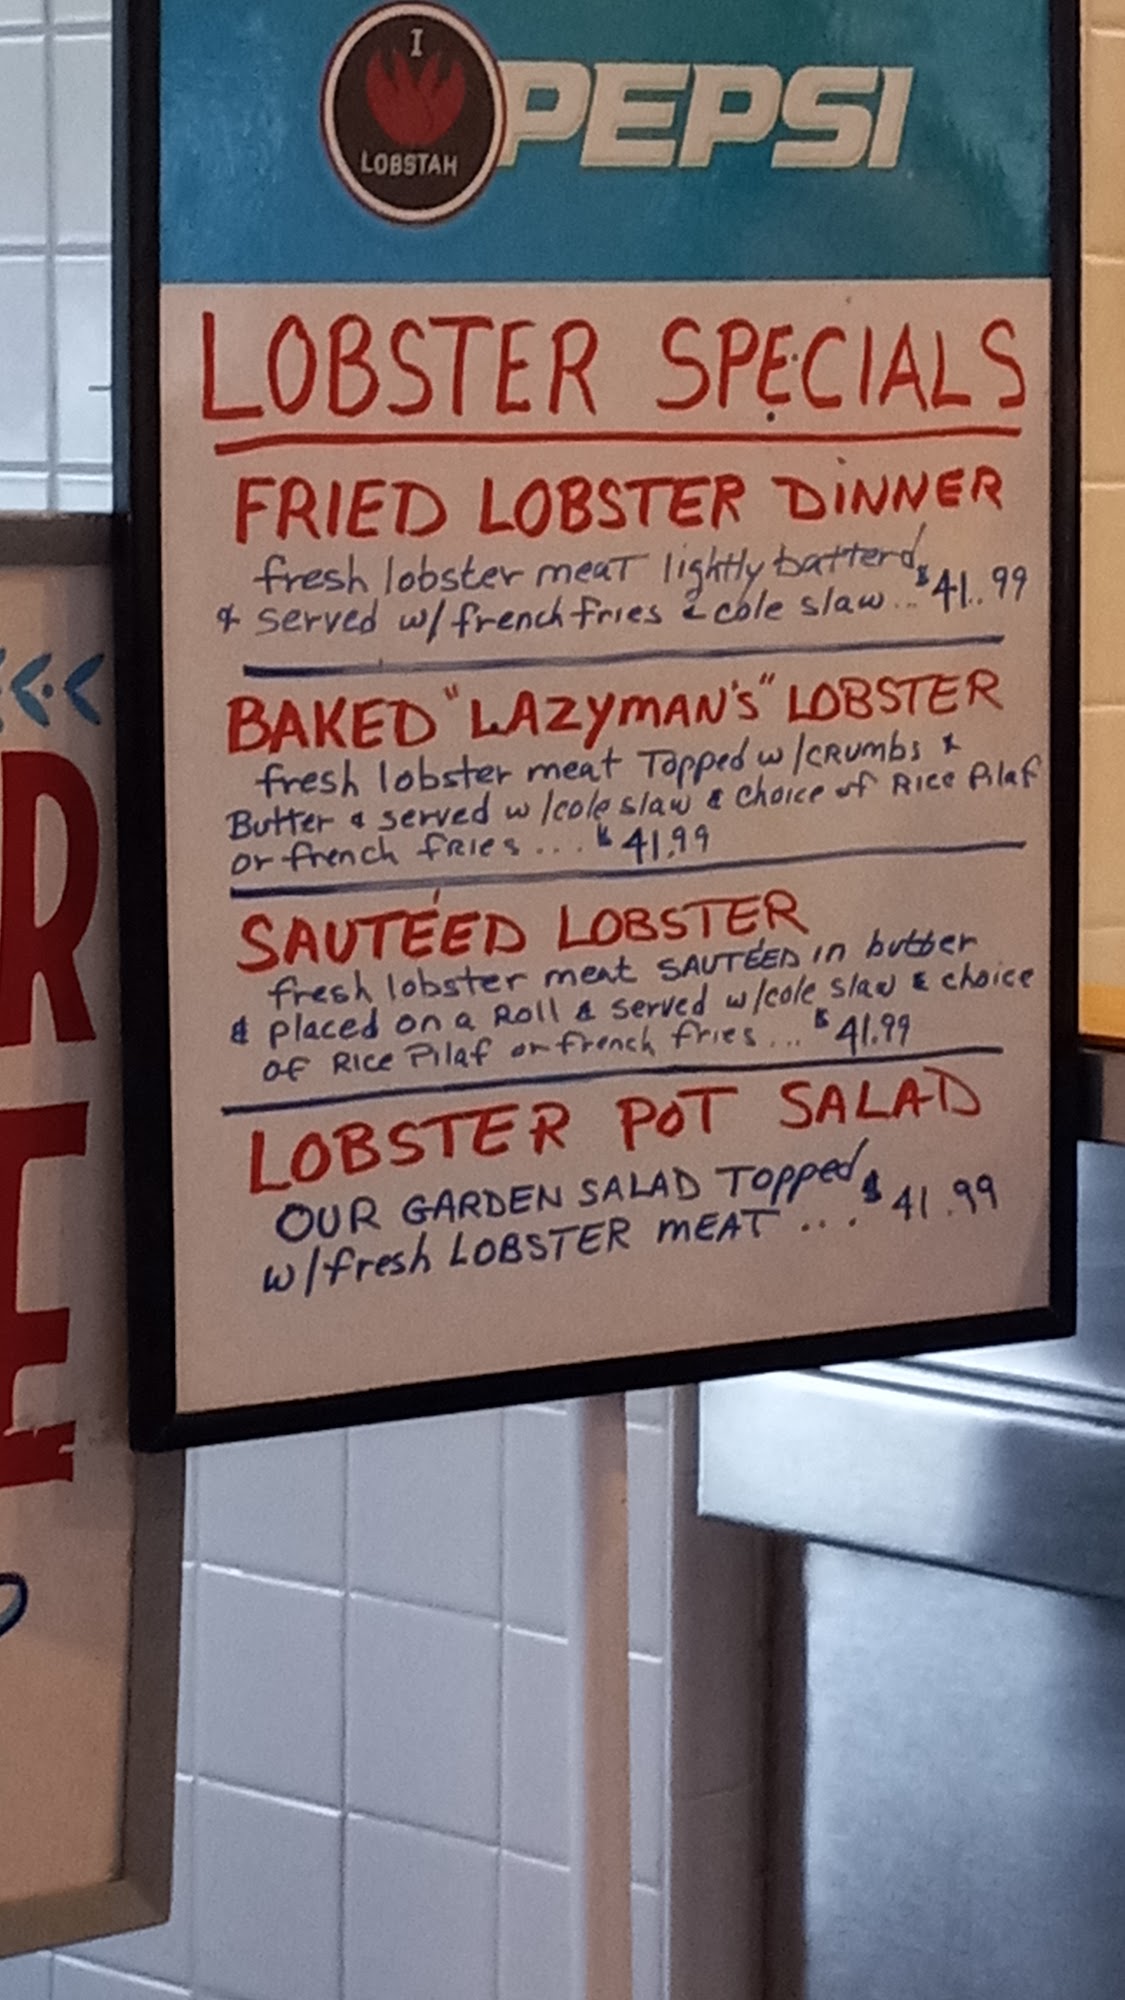 I
LOBSTAH
PEPSI
LOBSTER SPECIALS
FRIED LOBSTER DINNER
fresh lobster meat lightly batterd
& served w/french fries & cole slaw... $41.99
BAKED "LAZYMAN'S" LOBSTER
fresh lobster meat Topped w/CRUMBS &
Butter & served w/cole slaw & choice of Rice Pilaf
or french fries... $41.99
SAUTÉED LOBSTER
fresh lobster meat SAUTÉED in butter
& placed on a Roll & served w/cole slaw & choice
of Rice Pilaf or french fries... $41.99
LOBSTER POT SALAD
OUR GARDEN SALAD Topped
w/fresh LOBSTER MEAT ... $41.99